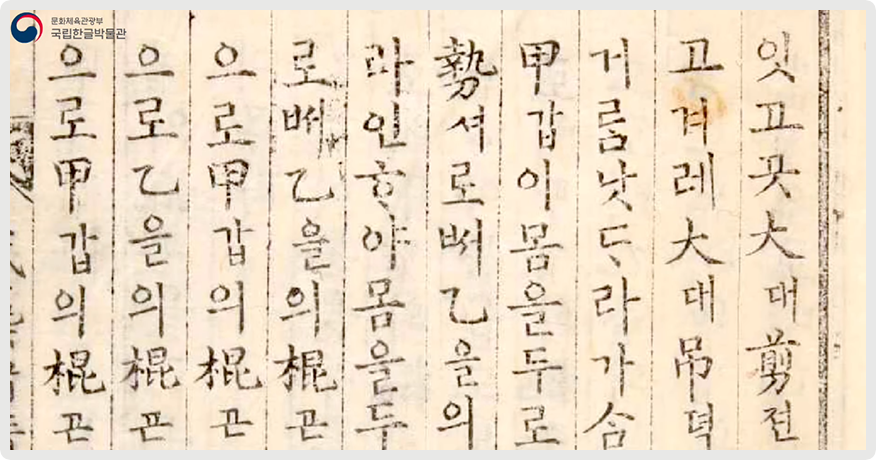 문화체육관광부
국립한글박물관
잇고곳大대剪전
고겨레大대吊뎍
거름낫ᄃᆞ라가
甲갑이몸을두로
勢셔로베乙을의
라인ᄒᆞ야몸을두
로베乙을의棍곤
으로甲갑의棍곤
으로乙을의棍곤
으로甲갑의棍곤